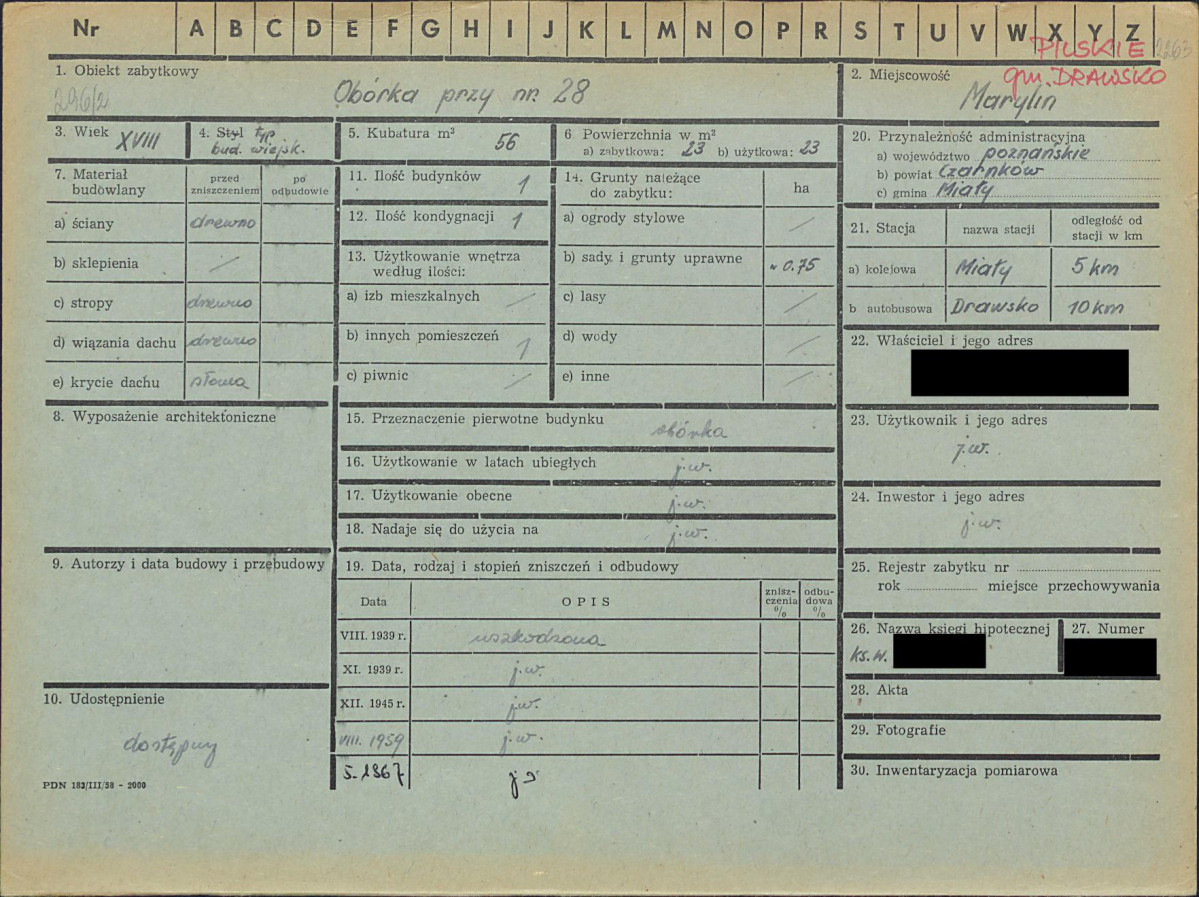 Nr A B C D E F G H I J K L M N O P R S T U V W X Y Z
PILSKIE 2263
gm. DRAWSKO
1. Obiekt zabytkowy
296/2
Obórka przy nr. 28
2. Miejscowość
Marylin
3. Wiek XVIII
4. Styl typ
bud. wiejsk.
5. Kubatura m³ 56
6 Powierzchnia w m²
a) zabytkowa: 23 b) użytkowa: 23
7. Materiał budowlany
przed zniszczeniem
po odbudowie
a) ściany drewno
b) sklepienia /
c) stropy drewno
d) wiązania dachu drewno
e) krycie dachu słoma
8. Wyposażenie architektoniczne
9. Autorzy i data budowy i przebudowy
10. Udostępnienie
dostępny
PDN 183/III/58 - 2000
11. Ilość budynków 1
12. Ilość kondygnacji 1
13. Użytkowanie wnętrza
według ilości:
a) izb mieszkalnych /
b) innych pomieszczeń 1
c) piwnic /
14. Grunty należące
do zabytku:
ha
a) ogrody stylowe /
b) sady i grunty uprawne ~ 0.75
c) lasy /
d) wody /
e) inne /
15. Przeznaczenie pierwotne budynku
obórka
16. Użytkowanie w latach ubiegłych j.w.
17. Użytkowanie obecne j.w.
18. Nadaje się do użycia na j.w.
19. Data, rodzaj i stopień zniszczeń i odbudowy
Data
OPIS
znisz-
czenia
%
odbu-
dowa
%
VIII. 1939 r. uszkodzona
XI. 1939 r. j.w.
XII. 1945 r. j.w.
VIII. 1959 j.w.
5. 1967
20. Przynależność administracyjna
a) województwo poznańskie
b) powiat Czarnków
c) gmina Miały
21. Stacja
nazwa stacji
odległość od
stacji w km
a) kolejowa Miały 5 km
b autobusowa Drawsko 10 km
22. Właściciel i jego adres
23. Użytkownik i jego adres
j.w.
24. Inwestor i jego adres
j.w.
25. Rejestr zabytku nr
rok miejsce przechowywania
26. Nazwa księgi hipotecznej
ks. w.
27. Numer
28. Akta
29. Fotografie
30. Inwentaryzacja pomiarowa